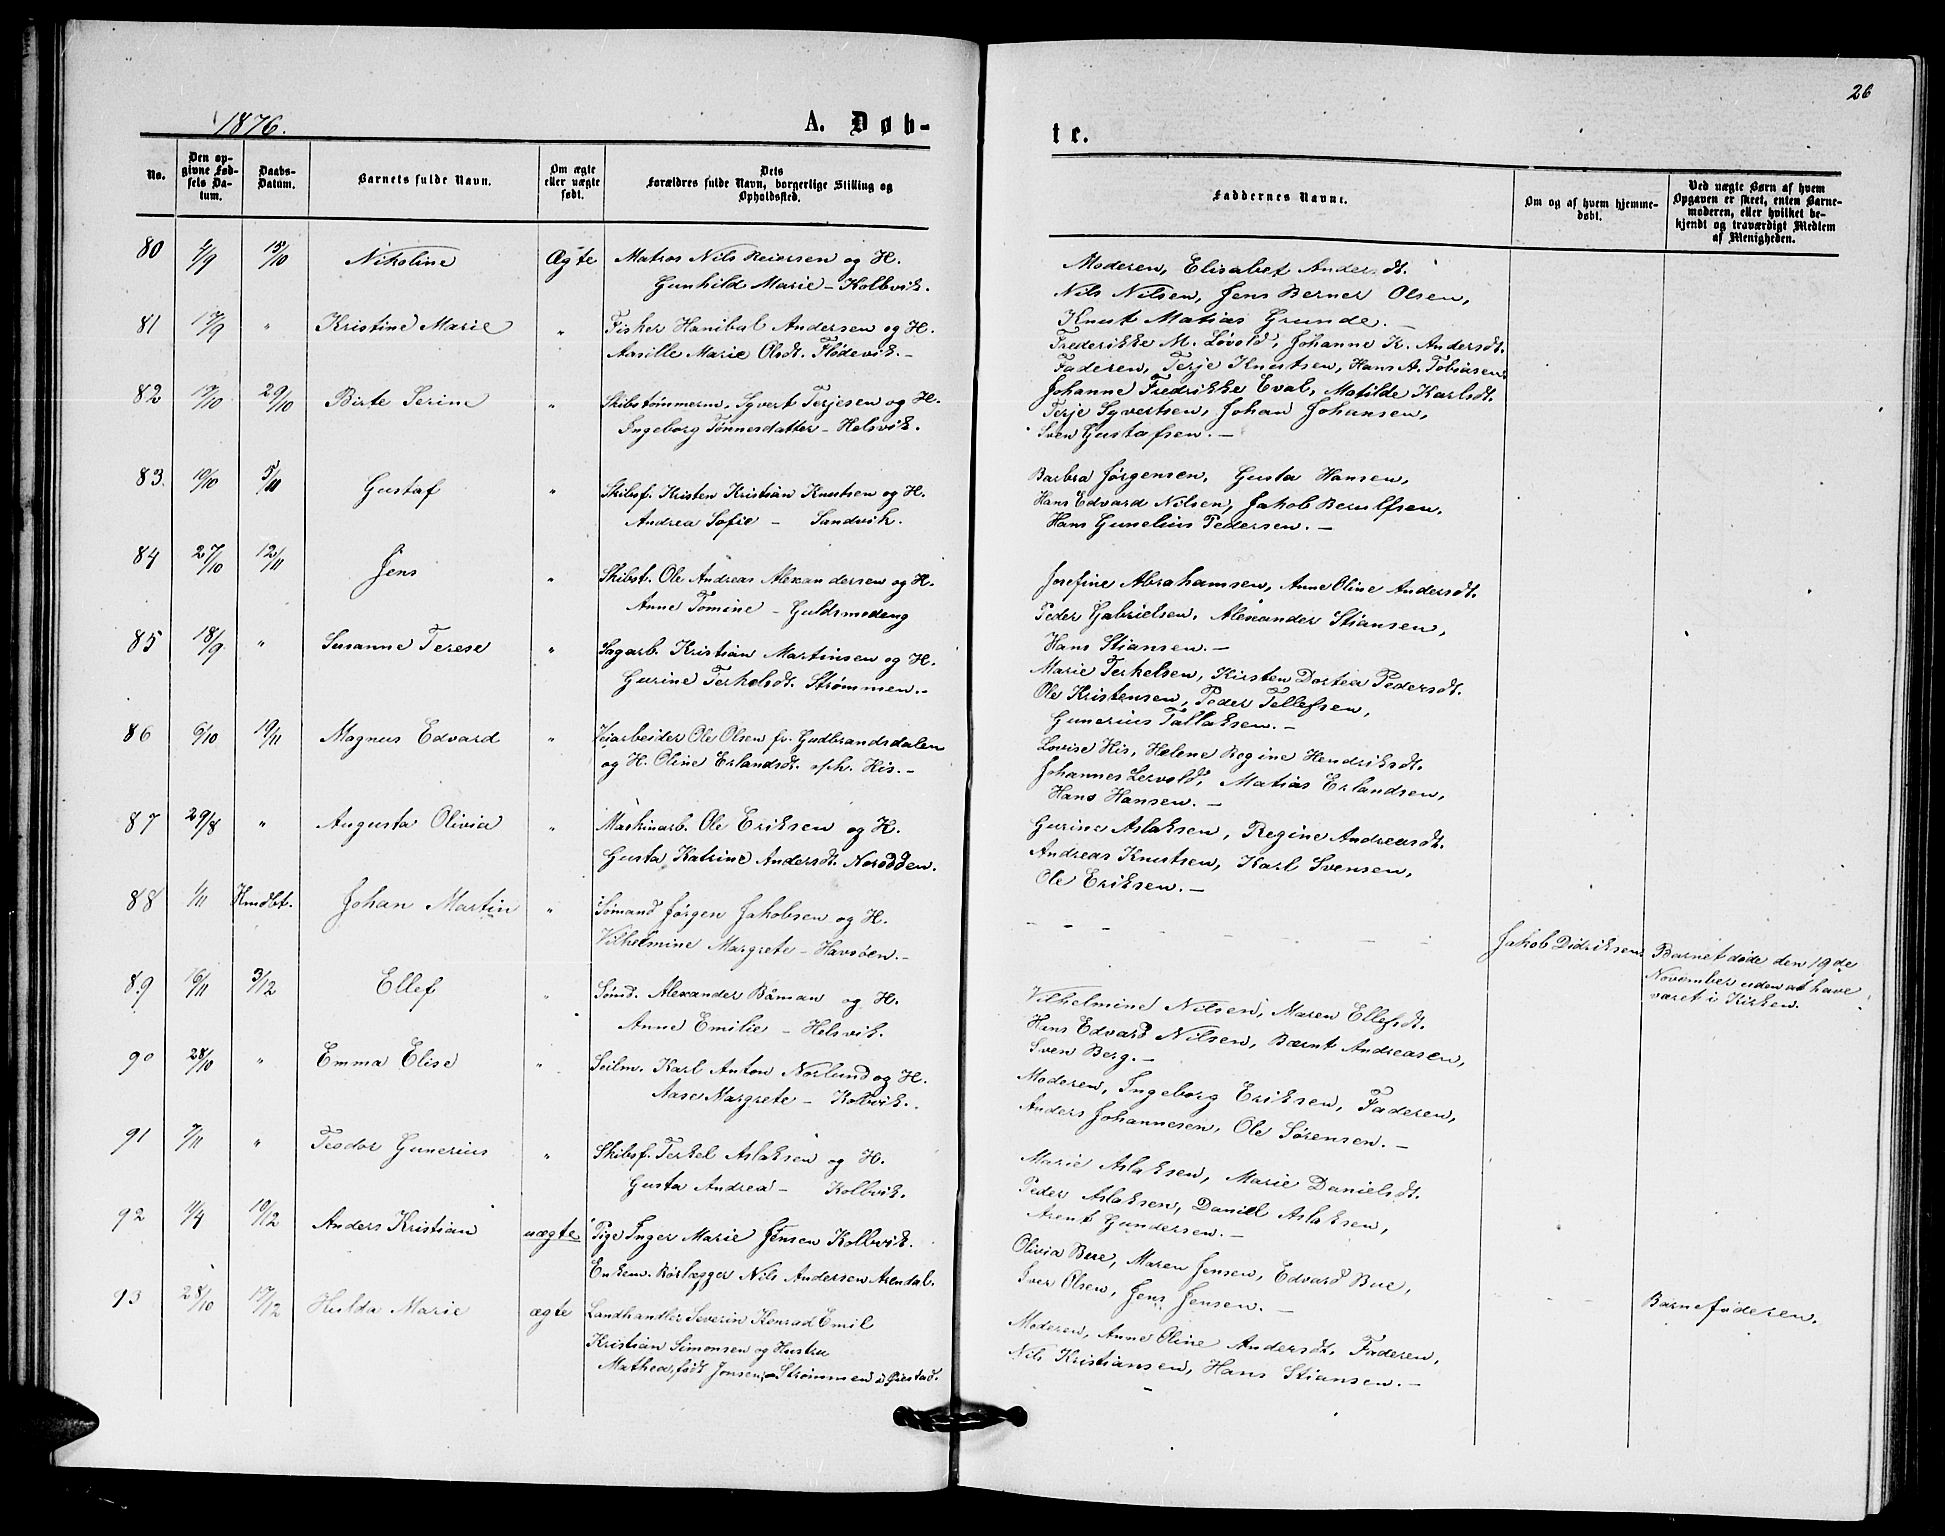 1876.
A. Døb-
No.
Den op-
givne Fød-
sels Da-
tum.
Daabs-
Datum.
Barnets fulde Navn.
Om ægte
eller uægte
født.
Dets
Forældres fulde Navn, borgerlige Stilling og
Opholdssted.
80 4/9 15/10 Nikoline Ægte Matros Nils Reiersen og H.
Gunhild Marie - Kolbvik.
81 17/9 " Kristine Marie " Fisker Hanibal Andersen og H.
Assille Marie Olsdt. Flødevik.-
82 13/10 29/10 Birte Serine " Skibstømmerm. Syvert Terjesen og H.
Ingeborg Tønnesdatter - Helsvik.
83. 10/10 5/11 Gustaf " Skibsf. Kristen Kristian Knutsen og H.
Andrea Sofie - Sandvik.
84 27/10 12/11 Jens " Skibst. Ole Andreas Alexandersen og H.
Anne Tomine - Guldsmedeng
85 18/9 " Susanne Terese " Sagarb. Kristian Martinsen og H.
Gurine Terkelsdt. Strømmen.-
86 6/10 19/11 Magnus Edvard " Veiarbeider Ole Olsen fr. Gudbrandsdalen
og H. Oline Erlandsdt. oph. His.-
87 29/8 " Augusta Olivia " Maskinarb. Ole Eriksen og H.
Gusta Katrine Andersdt. Norodden.
88 1/11 Hmdbt. Johan Martin " Sømand Jørgen Jakobsen og H.
Vilhelmine Margrete - Havsøen.-
89 6/11 3/12 Ellef " Sømd. Alexander Båman og H.
Anne Emilie - Helsvik.
90 28/10 " Emma Elise " Seilm. Karl Anton Norlund og H.
Aase Margrete - Kolbvik.
91 7/11 " Teodor Gunerius " Skibsf. Terkel Aslaksen og H.
Gusta Andrea - Kolbvik.
92 4/4 10/12 Anders Kristian uægte Pige Inger Marie Jensen Kolbvik.
Enkem. Rørlægger Nils Andersen Arendal.
93 28/10 17/12 Hulda Marie ægte Landhandler Severin Konrad Emil
Kristian Simonsen og Hustru
Mathea, født Jonsen, Strømmen i Øiestad.
26
te.
Faddernes Navne.
Om og af hvem hjemme-
døbt.
Ved uægte Børn af hvem
Opgaven er skeet, enten Barne-
moderen, eller hvilket be-
kjendt og troværdigt Medlem
af Menigheden.
Moderen, Elisabet Andersdt.
Nils Nilsen, Jens Berner Olsen,
Knut Matias Grunde.-
Frederikke M. Løvold, Johanne K. Andersdt.
Faderen, Terje Knutsen, Hans A. Tobiasen
Johanne Fredrikke Eval, Matilde Karlsdt.
Terje Syvertsen, Johan Johansen,
Sven Gustafsen.-
Barbra Jørgensen, Gusta Hansen,
Hans Edvard Nilsen, Jakob Berulfsen,
Hans Gunelius Pedersen.-
Josefine Abrahamsen, Anne Oline Andersdt.
Peder Gabrielsen, Alexander Stiansen,
Hans Stiansen.-
Marie Terkelsen, Kirsten Dortea Pedersdt.
Ole Kristensen, Peder Tellefsen,
Gunerius Tallaksen.-
Lovise His, Helene Regine Hendriksdt.
Johannes Lervold, Matias Erlandsen,
Hans Hansen.-
Gurine Aslaksen, Regine Andreasdt.
Andreas Knutsen, Karl Svensen,
Ole Eriksen.-
Jakob Didriksen. Barnet døde den 19de
November uden at have
været i Kirken.
Vilhelmine Nilsen, Maren Ellefsdt.
Hans Edvard Nilsen, Bærnt Andreasen,
Sven Berg.-
Moderen, Ingeborg Eriksen, Faderen,
Anders Johannesen, Ole Sørensen.-
Marie Aslaksen, Marie Danielsdt.
Peder Aslaksen, Daniel Aslaksen,
Arent Gundersen.-
Olivia Bue, Maren Jensen, Edvard Bue,
Iver Olsen, Jens Jensen.- Barnefaderen.
Moderen, Anne Oline Andersdt. Faderen,
Nils Kristiansen, Hans Stiansen.-